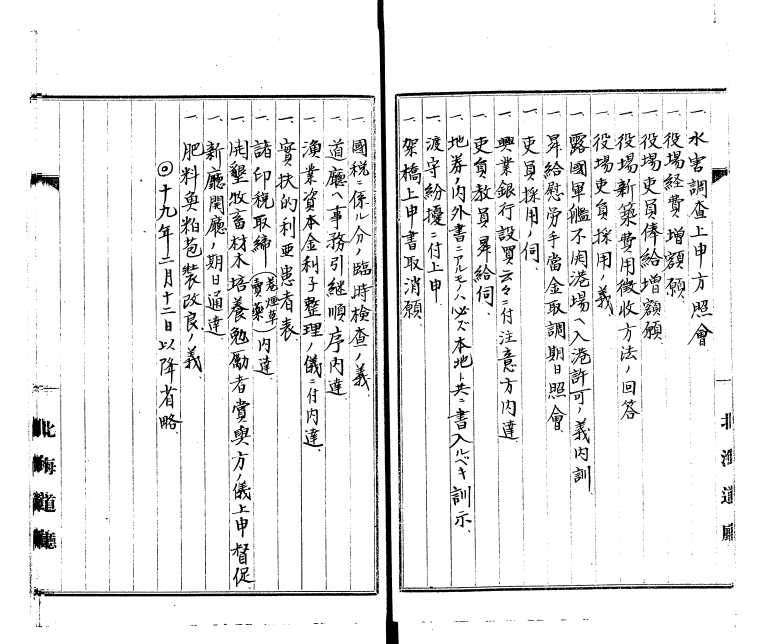 一、水害調査上申方照會
一、役場経費増額願、
一、役場吏員俸給増額願、
一、役場新築費用徴收方法ノ回答
一、役場吏員採用ノ義、
一、露國軍艦不開港場ヘ入港許可ノ義内訓
一、昇給慰労手當金取調期日照會、
一、吏員採用ノ伺、
一、興業銀行設買云々ニ付注意方内達、
一、吏員教員昇給伺、
一、地券ノ内外書ニアルモノハ必ズ本地ト共ニ書入ルベキ訓示、
一、渡守紛擾ニ付上申、
一、架橋上申書取消願
一、國税ニ係ル分ノ臨時検査ノ義、
一、道廳ヘ事務引継順序内達、
一、漁業資本金利子整理ノ儀ニ付内達、
一、實扶的利亜患者表、
一、諸印税取締(巻煙草 賣藥)内達、
一、開墾牧畜材木培養勉励者賞與方ノ儀上申督促
一、新廳開廳ノ期日通達、
一、肥料魚粕苞装改良ノ義、
◎十九年二月十二日以降省略、
北海道廳
北海道廳